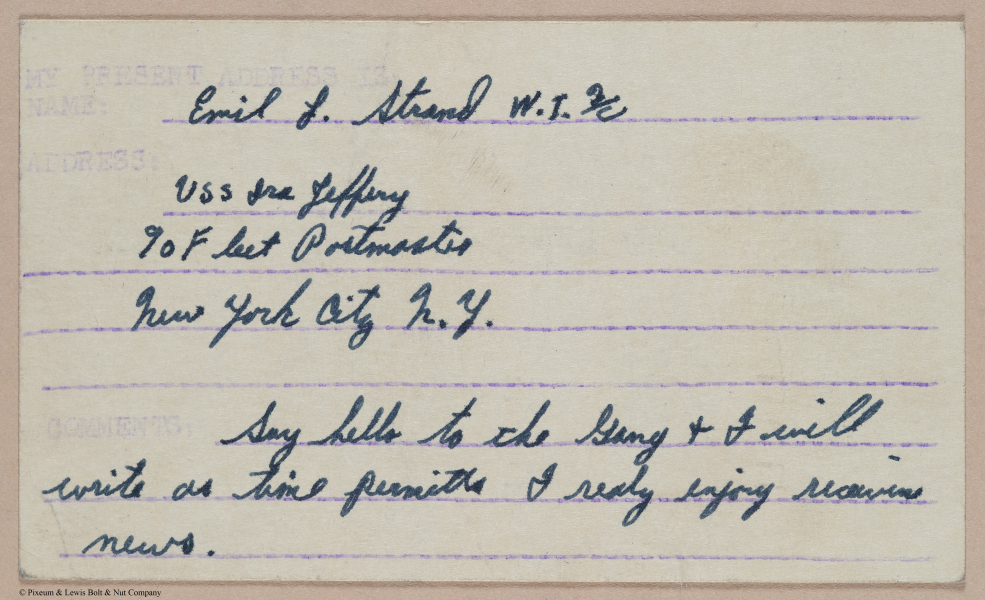 MY PRESENT ADDRESS IS:
NAME: Emil L. Strand W.T. 2/c
ADDRESS:
USS Ira Jeffery
% Fleet Postmaster
New York City N.Y.
COMMENTS: Say hello to the Gang & I will
write as time permitts I realy enjoy receiving
news.
© Pixeum & Lewis Bolt & Nut Company